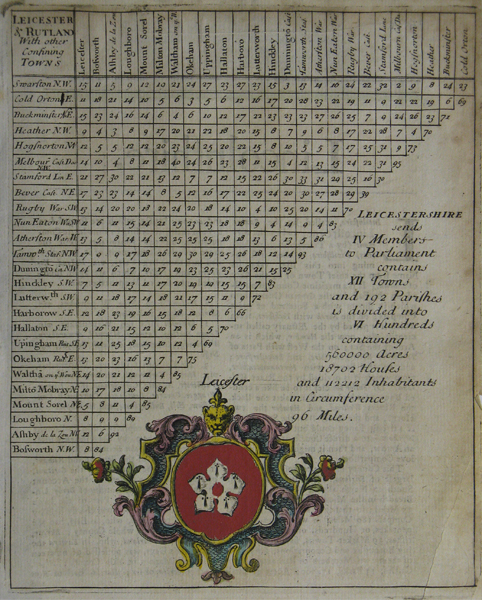 LEICESTER
& RUTLAND
With other
Confining
TOWNS
Leicester
Bosworth
Ashby de la Zou
Loughboro
Mount Sorel
Milton Mobray
Waltham on ye W.
Okeham
Uppingham
Hallaton
Harboro
Lutterworth
Hinckley
Dunningto Cast
Tamworth Staf
Atherston War
Nun Eaton War
Rugby War
Bever Cast
Stamford Linc
Hogsnorton
Heather
Buckminster
Cold Orton
Swarston N.W. 15 11 5 9 12 19 23 24 27 23 27 23 15 3 13 14 10 24 22 32 2 9 8 24 23
Cold Orton E. 11 18 21 14 10 5 6 3 5 6 12 16 17 20 28 23 22 19 11 9 22 22 19 6 69
Buckminster S.E. 15 23 24 16 14 6 4 6 10 12 17 22 23 23 33 27 27 26 5 7 9 24 26 23 71
Heather N.W. 9 4 3 8 9 17 20 21 22 18 20 15 8 7 9 6 8 17 22 28 7 4 70
Hogsnorton N.W 12 5 5 12 12 20 23 24 25 20 22 15 8 10 5 5 7 17 25 31 9 73
Stamford Lin E. 21 27 30 22 21 13 12 7 7 12 15 22 26 30 33 31 29 25 16 30
Bever Cast. N.E. 17 23 23 14 14 8 5 12 16 17 22 25 24 20 30 27 28 29 39
Rugby War S.W. 13 14 20 20 18 22 24 20 18 14 10 4 10 25 20 14 11 70
Nun Eaton Wa.S.W 11 6 11 15 14 21 25 23 23 18 18 9 4 14 9 4 83
Atherston War.W. 13 5 8 14 14 22 25 25 25 18 18 13 6 13 5 80
Tamwoth Staf.N.W. 17 9 9 17 18 26 29 30 29 25 26 18 12 14 93
Dunington Ca.N.W 14 11 6 7 10 17 19 23 25 23 26 21 15 25
Hinckley S.W. 7 5 11 13 11 17 20 19 19 15 15 7 83
Lutterwth S.W. 9 11 18 17 14 18 21 17 15 11 9 72
Harborow S.E. 12 18 23 19 16 15 18 12 8 6 66
Hallaton S.E. 9 16 21 15 12 10 12 6 5 70
Upingham Rut.S.E. 13 11 25 18 15 10 12 4 69
Okeham Rut. E. 13 20 23 16 13 7 7 75
Walthã on ye Wou N.E. 14 20 21 12 11 4 85
Miltõ Mobray N. 10 17 18 10 8 84
Mount Sorel N.E. 5 8 11 4 85
Loughboro N. 8 9 9 89
Ashby de la Zou N.W. 12 6 92
Bosworth N.W. 8 84
LEICESTERSHIRE
sends
IV Members
to Parliament
contains
XII Towns
and 192 Parishes
is divided into
VI Hundreds
containing
560000 Acres
18702 Houses
and 112212 Inhabitants
in Circumference
96 Miles.
Leicester